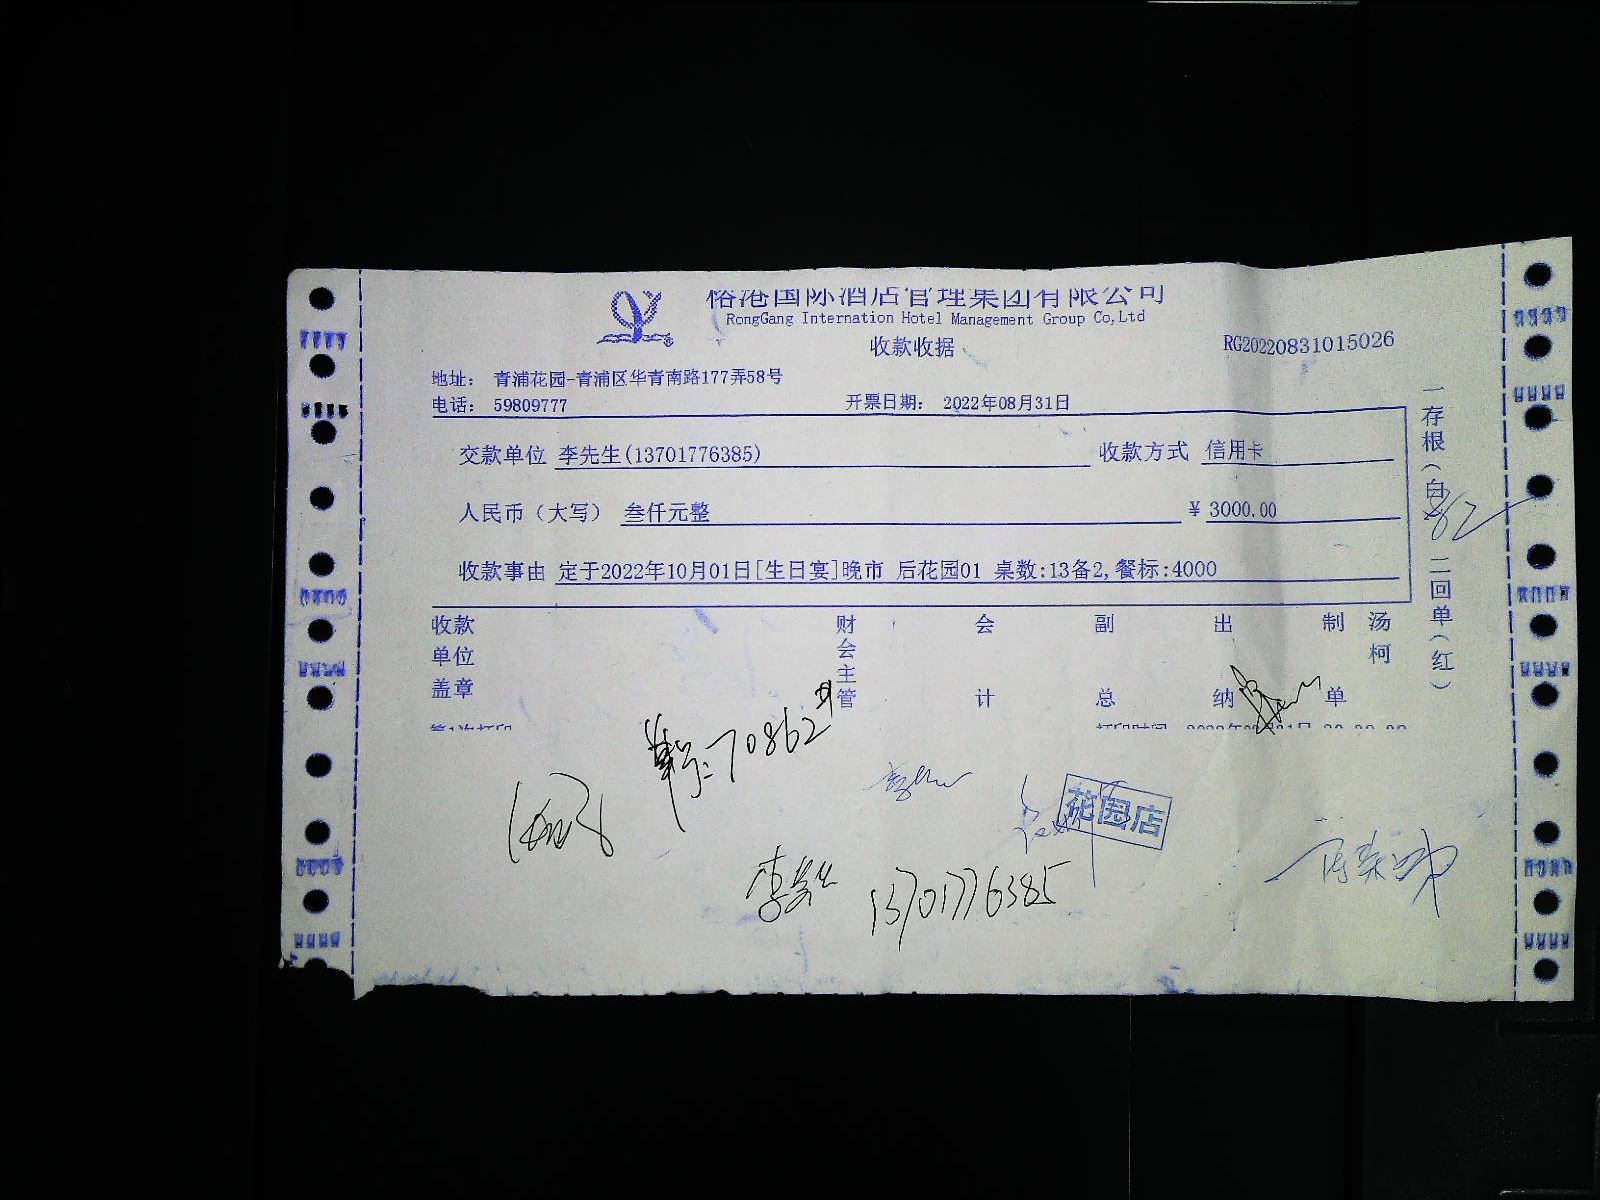 俗港国际酒店管理集团有限公司
RongGang Internation Hotel Management Group Co,Ltd
收款收据
RG20220831015026
地址： 青浦花园-青浦区华青南路177弄58号
电话： 59809777
开票日期： 2022年08月31日
交款单位 李先生(13701776385)
收款方式 信用卡
人民币（大写） 叁仟元整
¥ 3000.00
收款事由 定于2022年10月01日[生日宴]晚市 后花园01 桌数:13备2,餐标:4000
一存根(白) 二回单(红)
收款单位盖章
财会主管
会计
副总
出纳
制单
汤柯
第1次打印
打印时间
单号:70862
花园店
13701776385